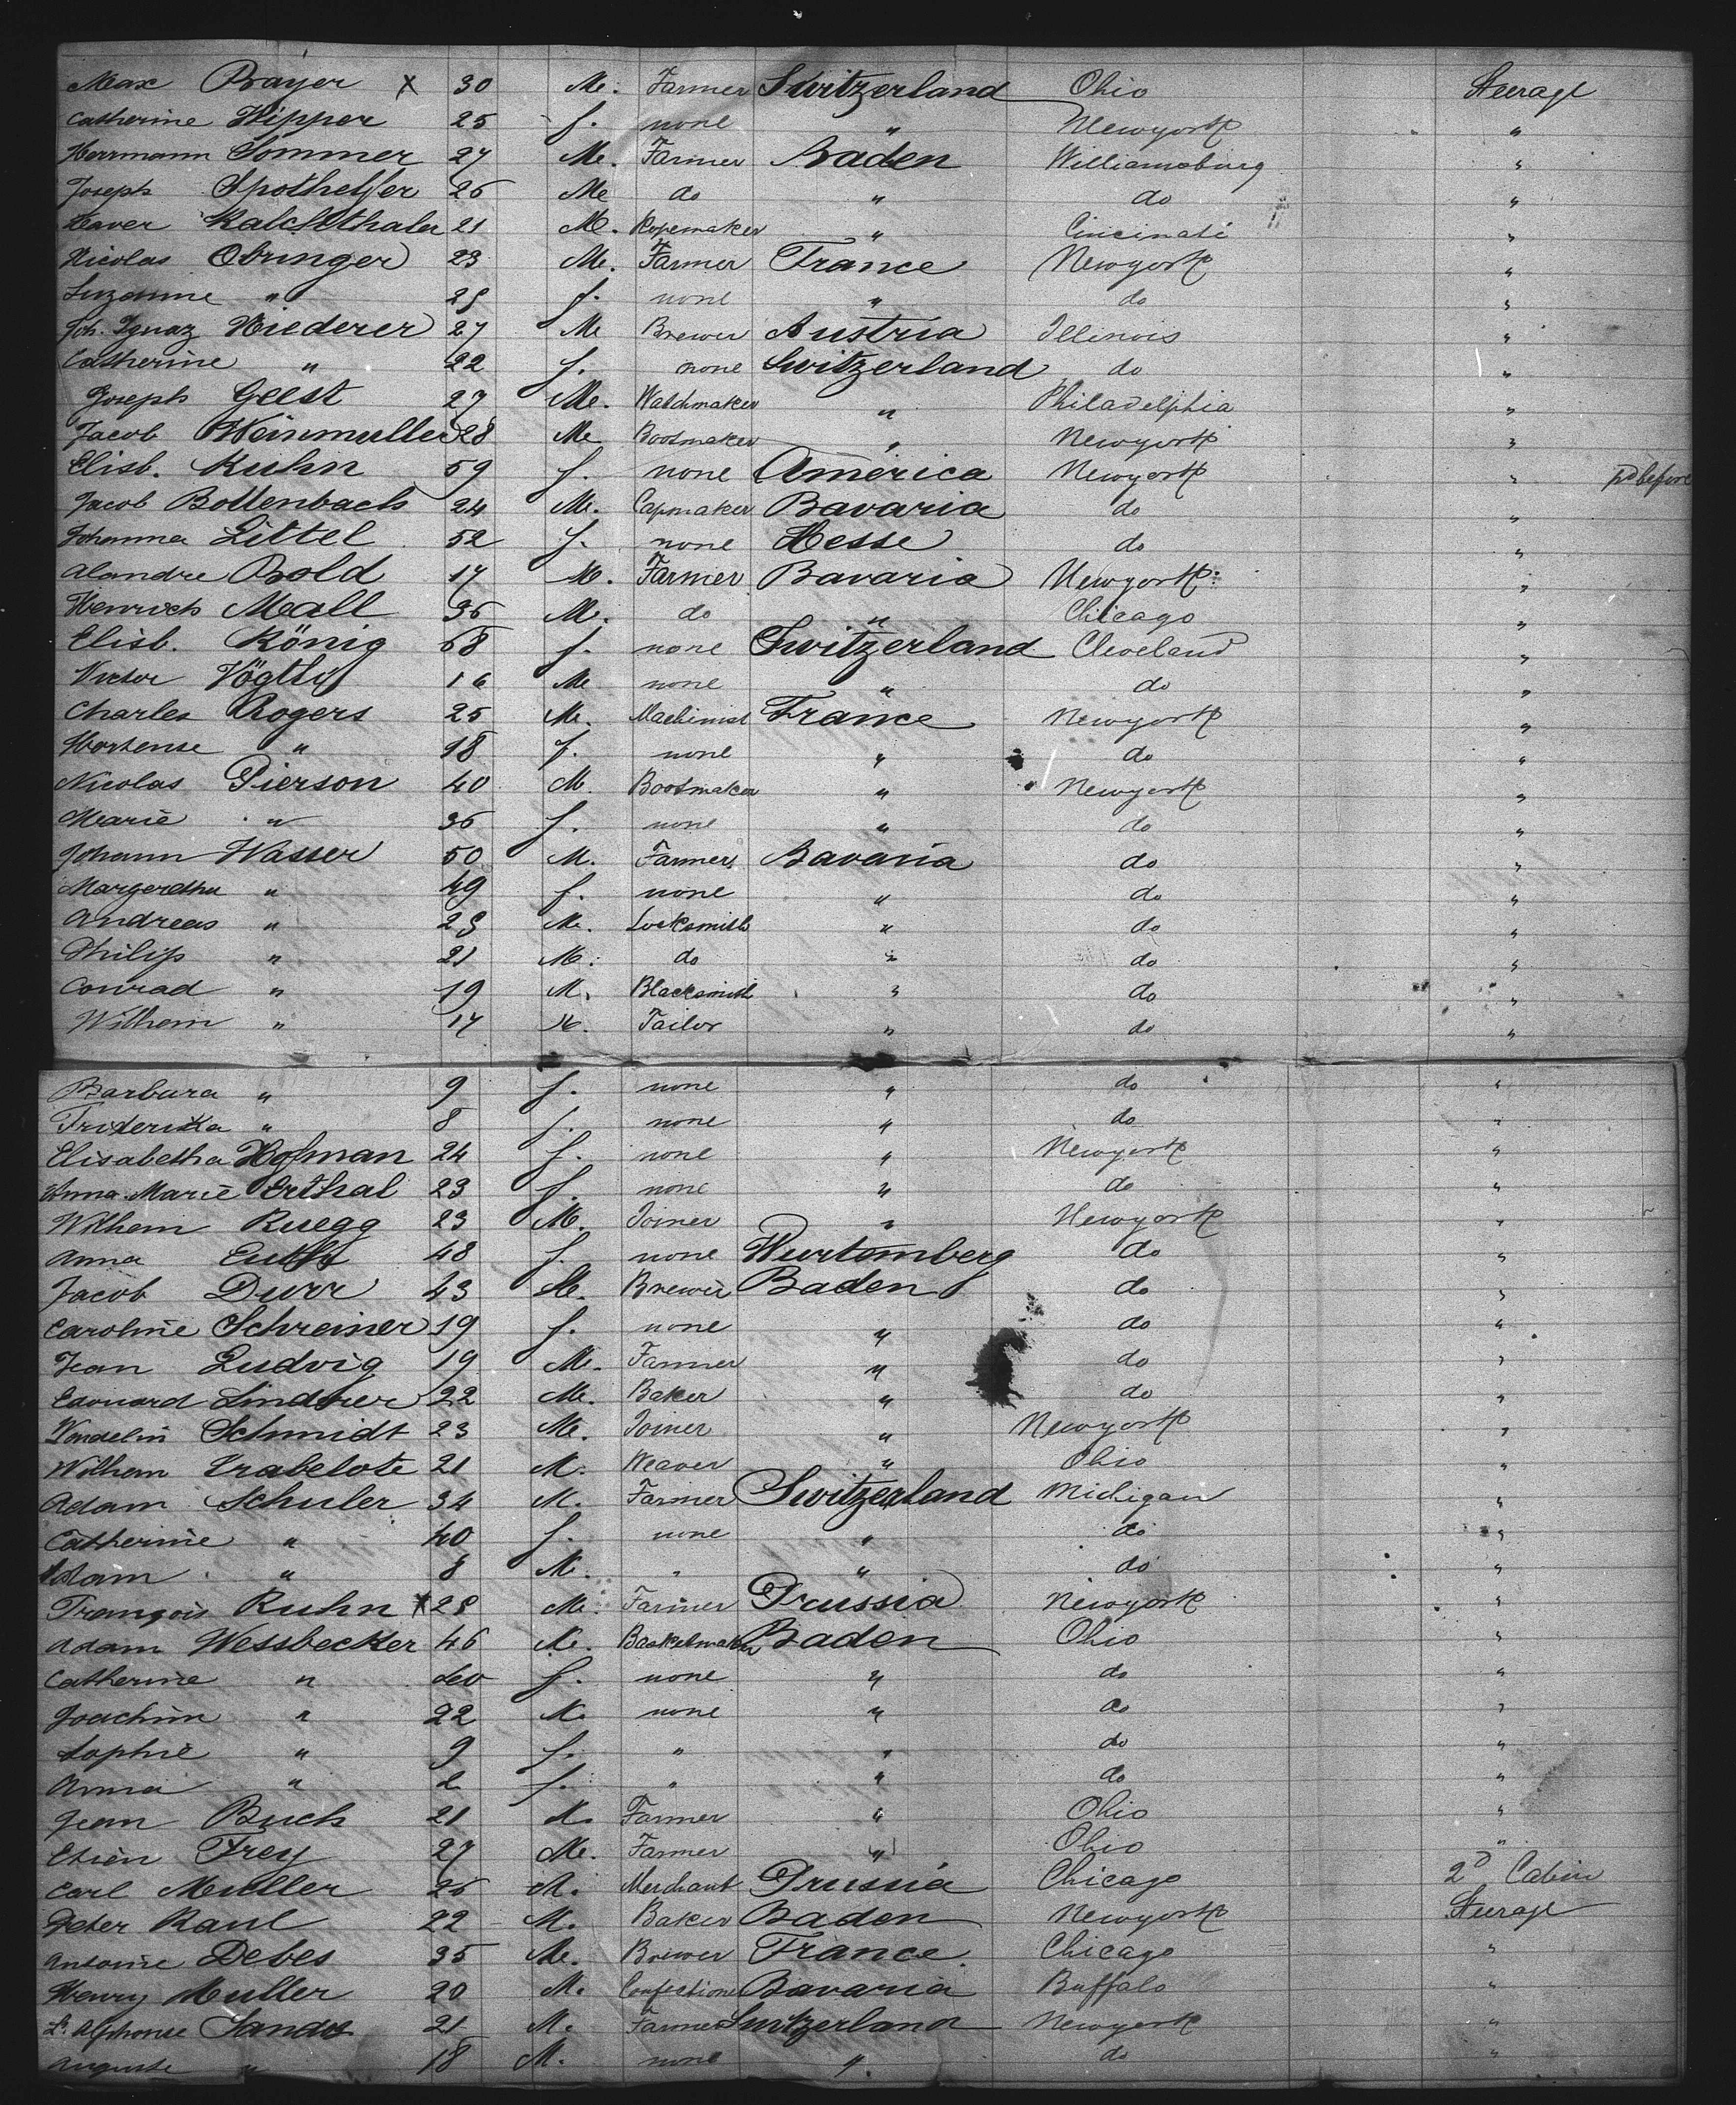 Max Brayer x 30 M. Farmer Switzerland Ohio Steerage
Catherine Hipper 25 f. none " Newyork "
Herrmann Sommer 27 M. Farmer Baden Williamsburg "
Joseph Spothelfer 26 M do " do "
Xaver Kalchthaler 21 M. Ropemaker " Cincinati "
Nicolas Obringer 23 M. Farmer France Newyork "
Suzanne " 25 f. none " do "
Joh. Ignaz Niederer 27 M Brewer Austria Illinois "
Catherine " 22 f. none Switzerland do "
Joseph Geest 27 M. Watchmaker " Philadelphia "
Jacob Weinmuller 28 M Bootmaker " Newyork "
Elisb. Kuhn 59 f. none America Newyork " pd before
Jacob Bottenbach 24 M. Capmaker Bavaria do "
Johanna Littel 52 f. none Hesse do "
Alandre Bold 17 M. Farmer Bavaria Newyork "
Henrich Mall 36 M. do " Chicago "
Elisb. König 58 f. none Switzerland Cleveland "
Victor Vögtly 16 M none " do "
Charles Rogers 25 M. Machinist France Newyork "
Hortense " 18 f. none " do "
Nicolas Pierson 40 M. Bootmaker " Newyork "
Marie " 36 f. none " do "
Johann Wasser 50 M. Farmer Bavaria do "
Margeretha " 49 f. none " do "
Andreas " 23 M. Locksmith " do "
Philip " 21 M. do " do "
Conrad " 19 M. Blacksmith " do "
Wilhem " 17 M. Tailor " do "
Barbura " 9 f. none " do "
Friderika " 8 f. none " do "
Elisabetha Hofman 24 f. none " Newyork "
Anna Marie Erthal 23 f. none " do "
Wilhem Ruegg 23 M. Joiner " Newyork "
Anna 48 f. none Wurtemberg do "
Jacob Durr 43 M. Brewer Baden do "
Caroline Schreiner 19 f. none " do "
Jean Ludvig 19 M. Farmer " do "
Edouard Lindner 22 M. Baker " do "
Wendelin Schmidt 23 M. Joiner " Newyork "
Wilhem Krabelote 21 M. Weaver " Ohio "
Adam Schuler 34 M. Farmer Switzerland Michigan "
Catherine " 40 f. none " do "
Adam " 8 M. " " do "
François Kuhn x 28 M. Farmer Prussia Newyork "
Adam Wessbecker 46 M. Basketmaker Baden Ohio "
Catherine " 40 f. none " do "
Joachim " 22 M. none " do "
Sophie " 9 f. " " do "
Anna " 2 f. " " do "
Jean Buch 21 M. Farmer " Ohio "
Frey 27 M. Farmer " Ohio "
Carl Muller 26 M. Merchant Prussia Chicago 2d Cabin
Peter Raul 22 M. Baker Baden Newyork Steerage
Antoine Debes 35 M. Brewer France Chicago "
Henry Muller 20 M. Confectioner Bavaria Buffalo "
Ls. Alphonse Sandoz 21 M. Farmer Switzerland Newyork "
Auguste " 18 M. none " do "